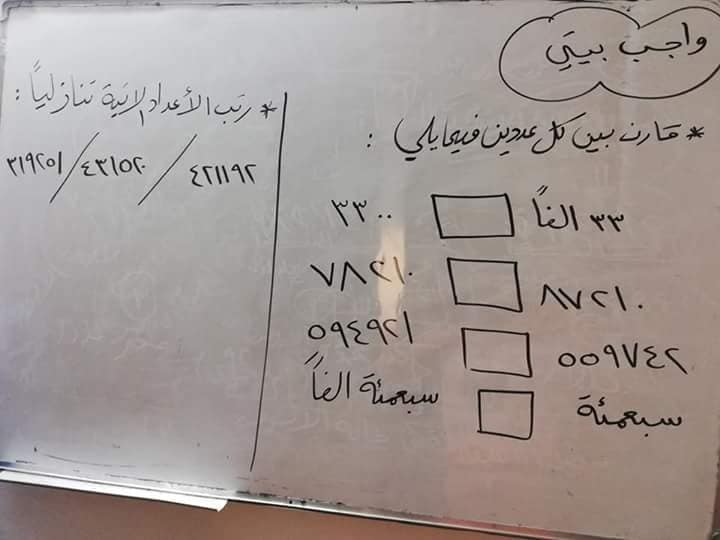 واجب بيتي
* قارن بين كل عددين فيما يلي :
٣٣ الفاً ٣٣٠٠
٨٧٢١٠ ٧٨٢١٠
٥٥٩٧٤٢ ٥٩٤٩٢١
سبعمئة سبعمئة الفاً
* رتب الأعداد الاتية تنازلياً :
٤٢١١٩٢ / ٤٣١٥٢٠ / ٣١٩٢٥١